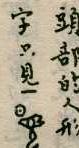 頭部的人形
字只見一